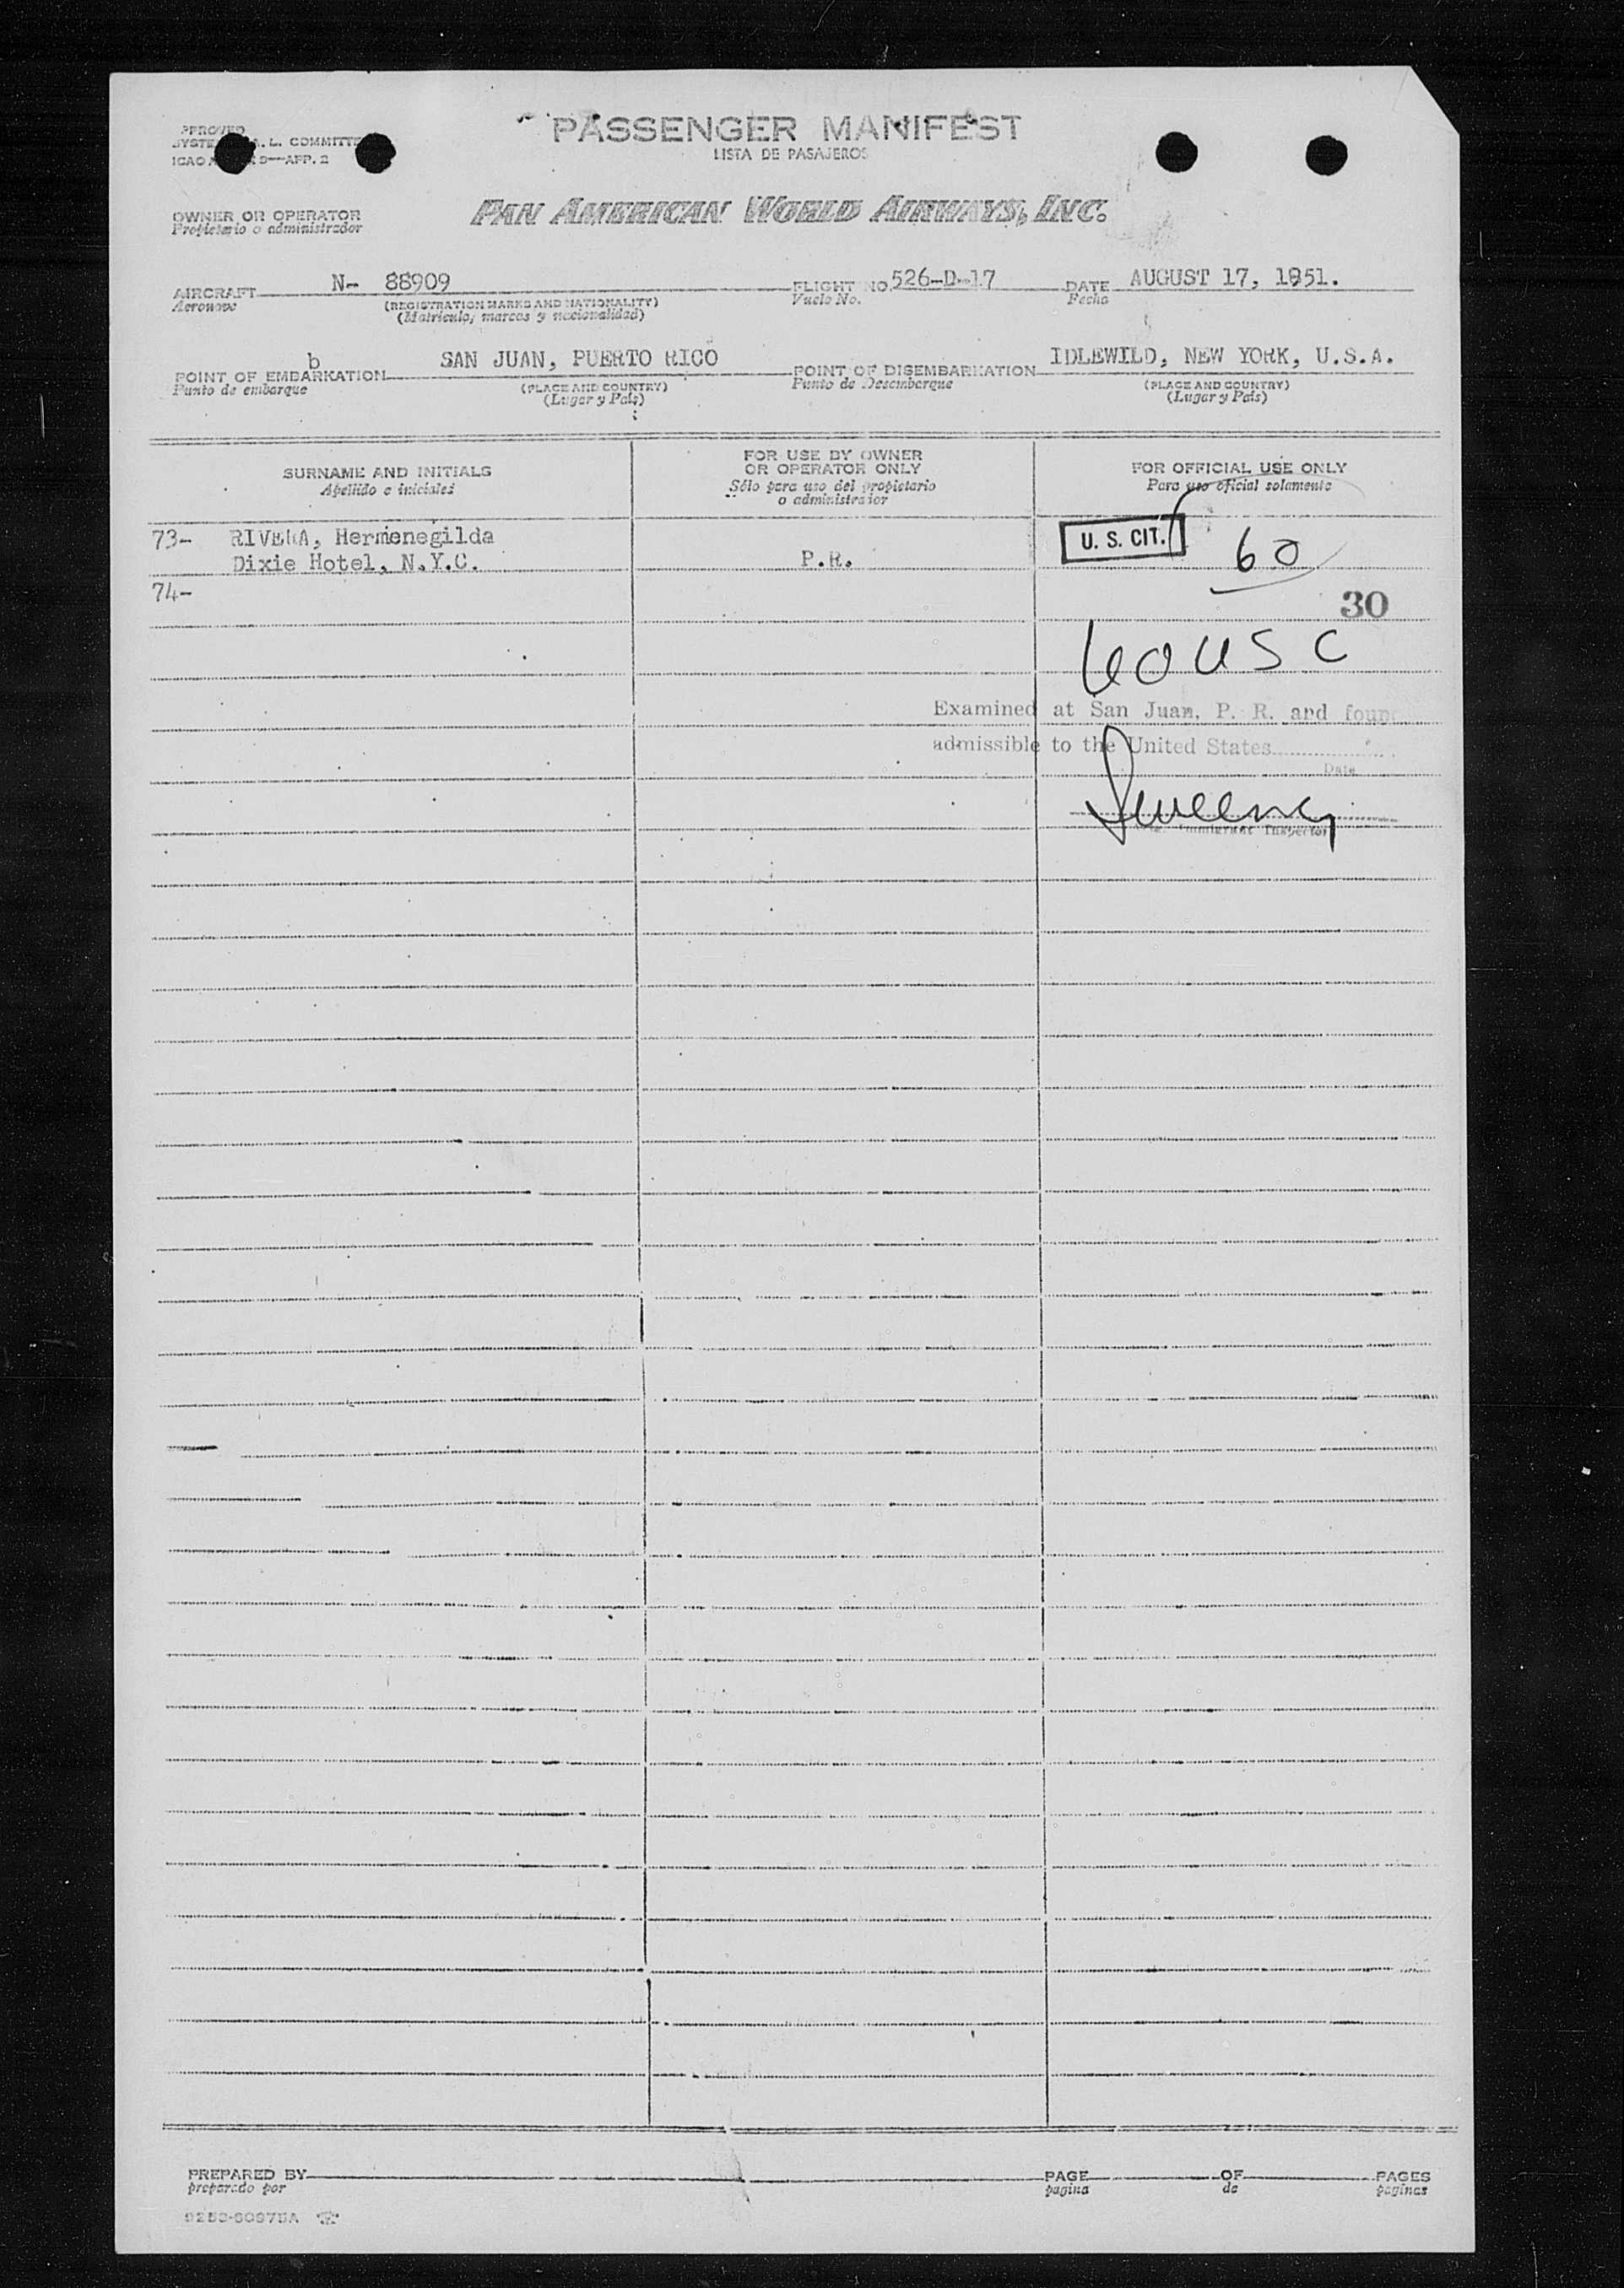 PASSENGER MANIFEST
LISTA DE PASAJEROS
L. COMMITTE
ICAO 9—APP. 2
OWNER OR OPERATOR
Propietario o administrador
PAN AMERICAN WORLD AIRWAYS, INC.
AIRCRAFT N- 88909 FLIGHT NO. 526-D-17 DATE AUGUST 17, 1951.
Aeronave (REGISTRATION MARKS AND NATIONALITY) Vuelo No. Fecha
(Matricula, marcas y nacionalidad)
b
POINT OF EMBARKATION SAN JUAN, PUERTO RICO POINT OF DISEMBARKATION IDLEWILD, NEW YORK, U.S.A.
Punto de embarque (PLACE AND COUNTRY) Punto de Desembarque (PLACE AND COUNTRY)
(Lugar y País) (Lugar y País)
SURNAME AND INITIALS FOR USE BY OWNER OR OPERATOR ONLY FOR OFFICIAL USE ONLY
Apellido e iniciales Sólo para uso del propietario o administrador Para uso oficial solamente
73- RIVERA, Hermenegilda U. S. CIT. 60
Dixie Hotel, N.Y.C. P.R.
74- 30
60 USC
Examined at San Juan, P. R. and foun
admissible to the United States
Date
Sweeney
Immigrant Inspector
PREPARED BY PAGE OF PAGES
preparado por pagina de paginas